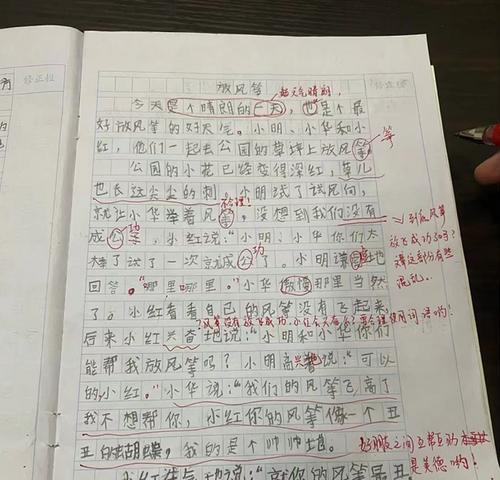 修正栏
放风筝
天气晴朗,
今天是个晴朗的一天,也是个最
好放风筝的好天气。小明、小华和小
红,他们一起去公园的草坪上放风筝
筝
公园的小花已经变得深红,草儿
也长出尖尖的刺。小明试了试风向,
不合理!
就让小华举着风筝,没想到我们没有
成公
功
小红说:“小明、小华你们太
到底风筝
放飞成功了吗?
这部分有些
混乱。
棒了试了一次就成公了。小明谦虚地
功
回答:“哪里哪里。”小华傲慢那里当然
了。小红看看自己的风筝没有飞起来,
后来小红兴奋地说:“小明和小华你们
能帮我放风筝吗?小明高兴地说:“可以
的小红。”小华说:“我们的风筝飞高了
我不想帮你,小红你的风筝像一个丑
丑的蝴蝶,我的是个帅帅
好朋友之间互帮互助
是美德哟!